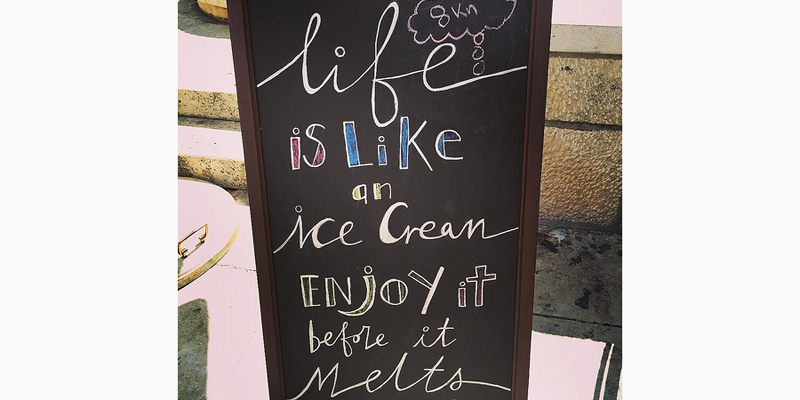 8 Kn
life
is Like
an
ice Crean
ENjOY it
before it
Melts